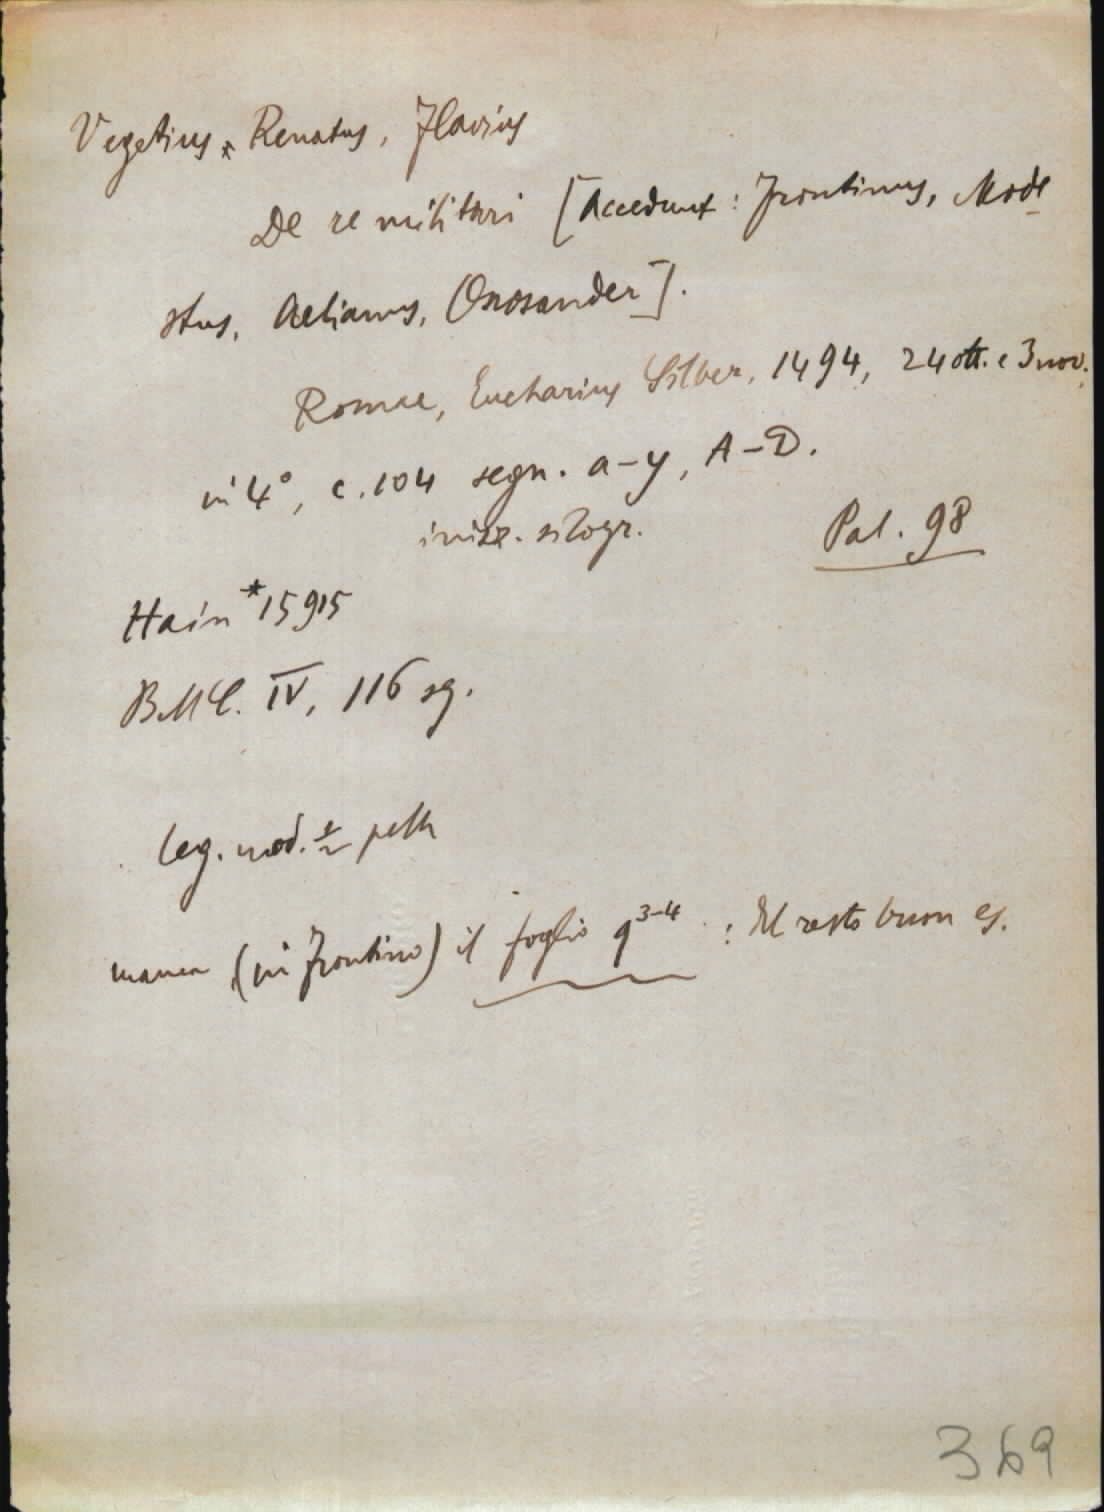 Vegetius, Renatus, Flavius
De re militari [Accedunt: Frontinus, Mode
stus, Aelianus, Onosander].
Romae, Eucharius Silber, 1494, 24 ott. e 3 nov.,
in 4°, c. 104 segn. a-y, A-D.
iniz. silogr.
Pal. 98
Hain *15915
BMC. IV, 116 sg.
leg. mod. pelle
manca (in Frontino) il foglio q3-4 : Il resto buon es.
369